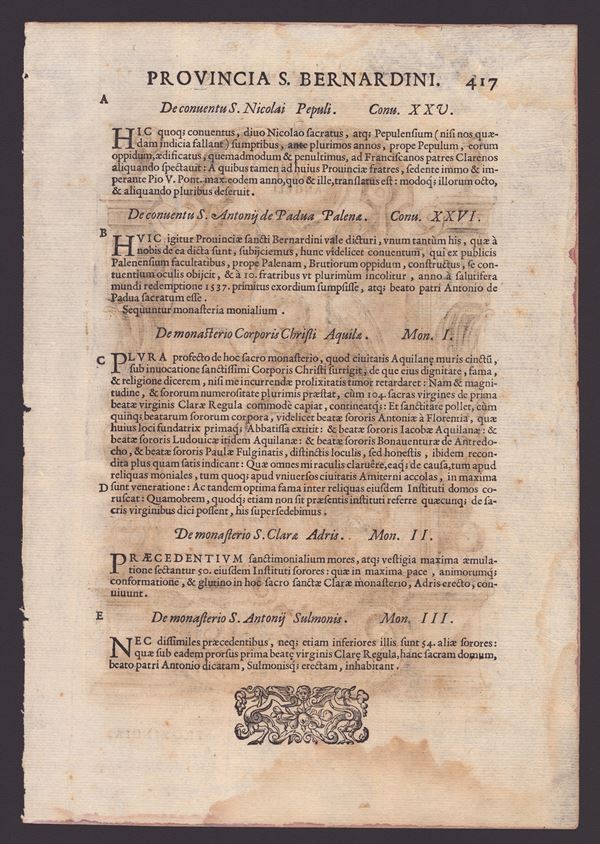 PROVINCIA S. BERNARDINI. 417
A
De conuentu S. Nicolai Pepuli. Conu. XXV.
HIC quoq; conuentus, diuo Nicolao sacratus, atq; Pepulensium (nisi nos quæ-
dam indicia fallant) sumptibus, ante plurimos annos, prope Pepulum, eorum
oppidum, ædificatus, quemadmodum & penultimus, ad Franciscanos patres Clarenos
aliquando spectauit: A quibus tamen ad huius Prouinciæ fratres, sedente immo & im-
perante Pio V. Pont. max. eodem anno, quo & ille, translatus est: modoq; illorum octo,
& aliquando pluribus deseruit.
De conuentu S. Antonij de Padua Palenæ. Conu. XXVI.
B
HVIC igitur Prouinciæ sancti Bernardini vale dicturi, vnum tantùm his, quæ à
nobis de ea dicta sunt, subijciemus, hunc videlicet conuentum, qui ex publicis
Palenensium facultatibus, prope Palenam, Brutiorum oppidum, constructus, se con-
tuentium oculis obijcit, & à 10. fratribus vt plurimùm incolitur, anno à salutifera
mundi redemptione 1537. primitus exordium sumpsisse, atq; beato patri Antonio de
Padua sacratum esse.
Sequuntur monasteria monialium.
De monasterio Corporis Christi Aquilæ. Mon. I.
C
PLVRA profecto de hoc sacro monasterio, quod ciuitatis Aquilanę muris cinctū,
sub inuocatione sanctissimi Corporis Christi surrigit, de que eius dignitate, fama,
& religione dicerem, nisi me incurrendæ prolixitatis timor retardaret: Nam & magni-
tudine, & sororum numerositate plurimis præstat, cùm 104. sacras virgines de prima
beatæ virginis Claræ Regula commodè capiat, contineatq;: Et sanctitate pollet, cùm
quinq; beatarum sororum corpora, videlicet beatæ sororis Antoniæ à Florentia, quæ
huius loci fundatrix primaq; Abbatissa extitit: & beatæ sororis Iacobæ Aquilanæ: &
beatæ sororis Ludouicæ itidem Aquilanæ: & beatæ sororis Bonauenturæ de Antredo-
cho, & beatæ sororis Paulæ Fulginatis, distinctis loculis, sed honestis, ibidem recon-
dita plus quam satis indicant: Quæ omnes miraculis claruêre, eaq; de causa, tum apud
reliquas moniales, tum quoq; apud vniuersos ciuitatis Amiterni accolas, in maxima
D sunt veneratione: Ac tandem optima fama inter reliquas eiusdem Instituti domos co-
ruscat: Quamobrem, quodq; etiam non sit præsentis instituti referre quæcunq; de sa-
cris virginibus dici possent, his supersedebimus.
De monasterio S. Claræ Adris. Mon. II.
PRÆCEDENTIVM sanctimonialium mores, atq; vestigia maxima æmula-
tione sectantur 50. eiusdem Instituti sorores: quæ in maxima pace, animorumq;
conformatione, & glutino in hoc sacro sanctæ Claræ monasterio, Adris erecto, con-
uiuunt.
E
De monasterio S. Antonij Sulmonis. Mon. III.
NEC dissimiles præcedentibus, neq; etiam inferiores illis sunt 54. aliæ sorores:
quæ sub eadem prorsus prima beatę virginis Clarę Regula, hanc sacram domum,
beato patri Antonio dicatam, Sulmonisq; erectam, inhabitant.